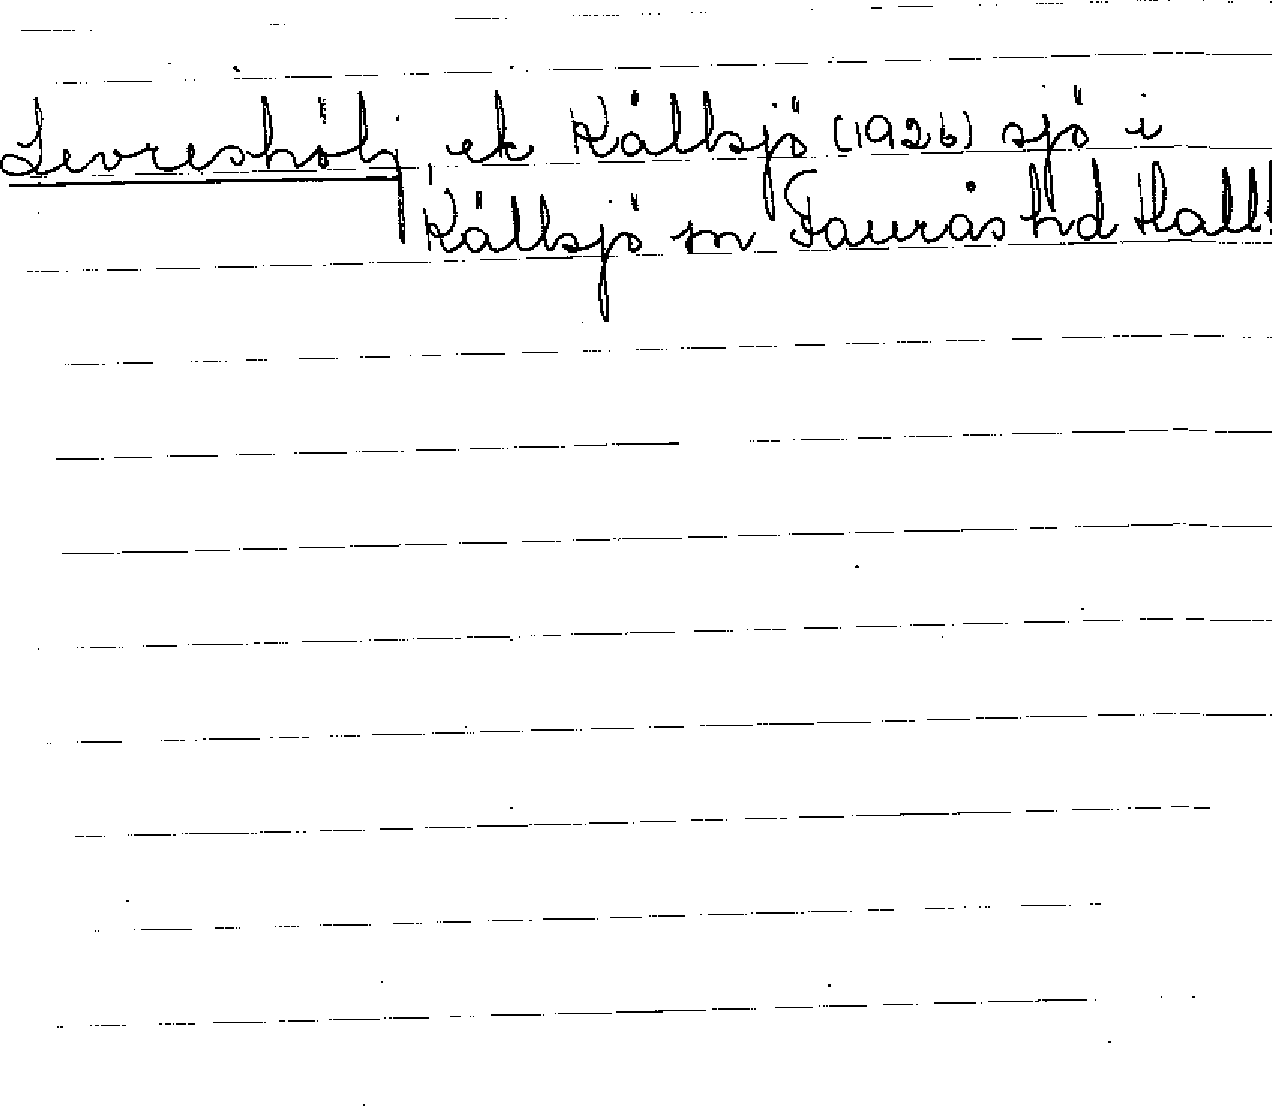 Levreshölj, ek Källsjö (1926) sjö i
Källsjö sn Faurås hd Hall